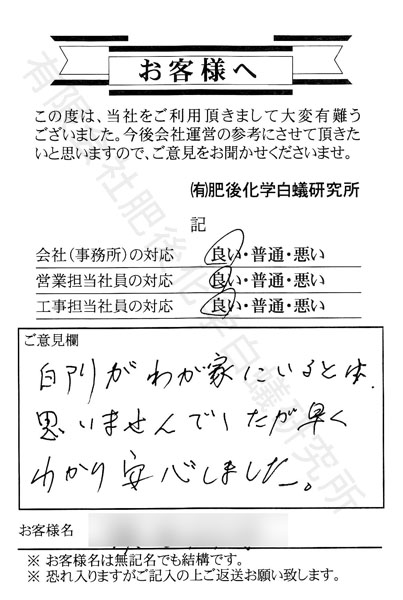 お客様へ
この度は、当社をご利用頂きまして大変有難う
ございました。今後会社運営の参考にさせて頂きた
いと思いますので、ご意見をお聞かせくださいませ。
㈲肥後化学白蟻研究所
記
会社（事務所）の対応 良い・普通・悪い
営業担当社員の対応 良い・普通・悪い
工事担当社員の対応 良い・普通・悪い
ご意見欄
白アリがわが家にいるとは、
思いませんでしたが早く
わかり安心しました。
お客様名
※ お客様名は無記名でも結構です。
※ 恐れ入りますがご記入の上ご返送お願い致します。
有限会社肥後化学白蟻研究所